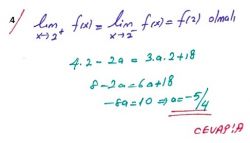 4/ lim x→2⁺ f(x) = lim x→2⁻ f(x) = f(2) olmalı
4.2 - 2a = 3.a.2 + 18
8 - 2a = 6a + 18
-8a = 10 ⇒ a = -5/4
CEVAP: A